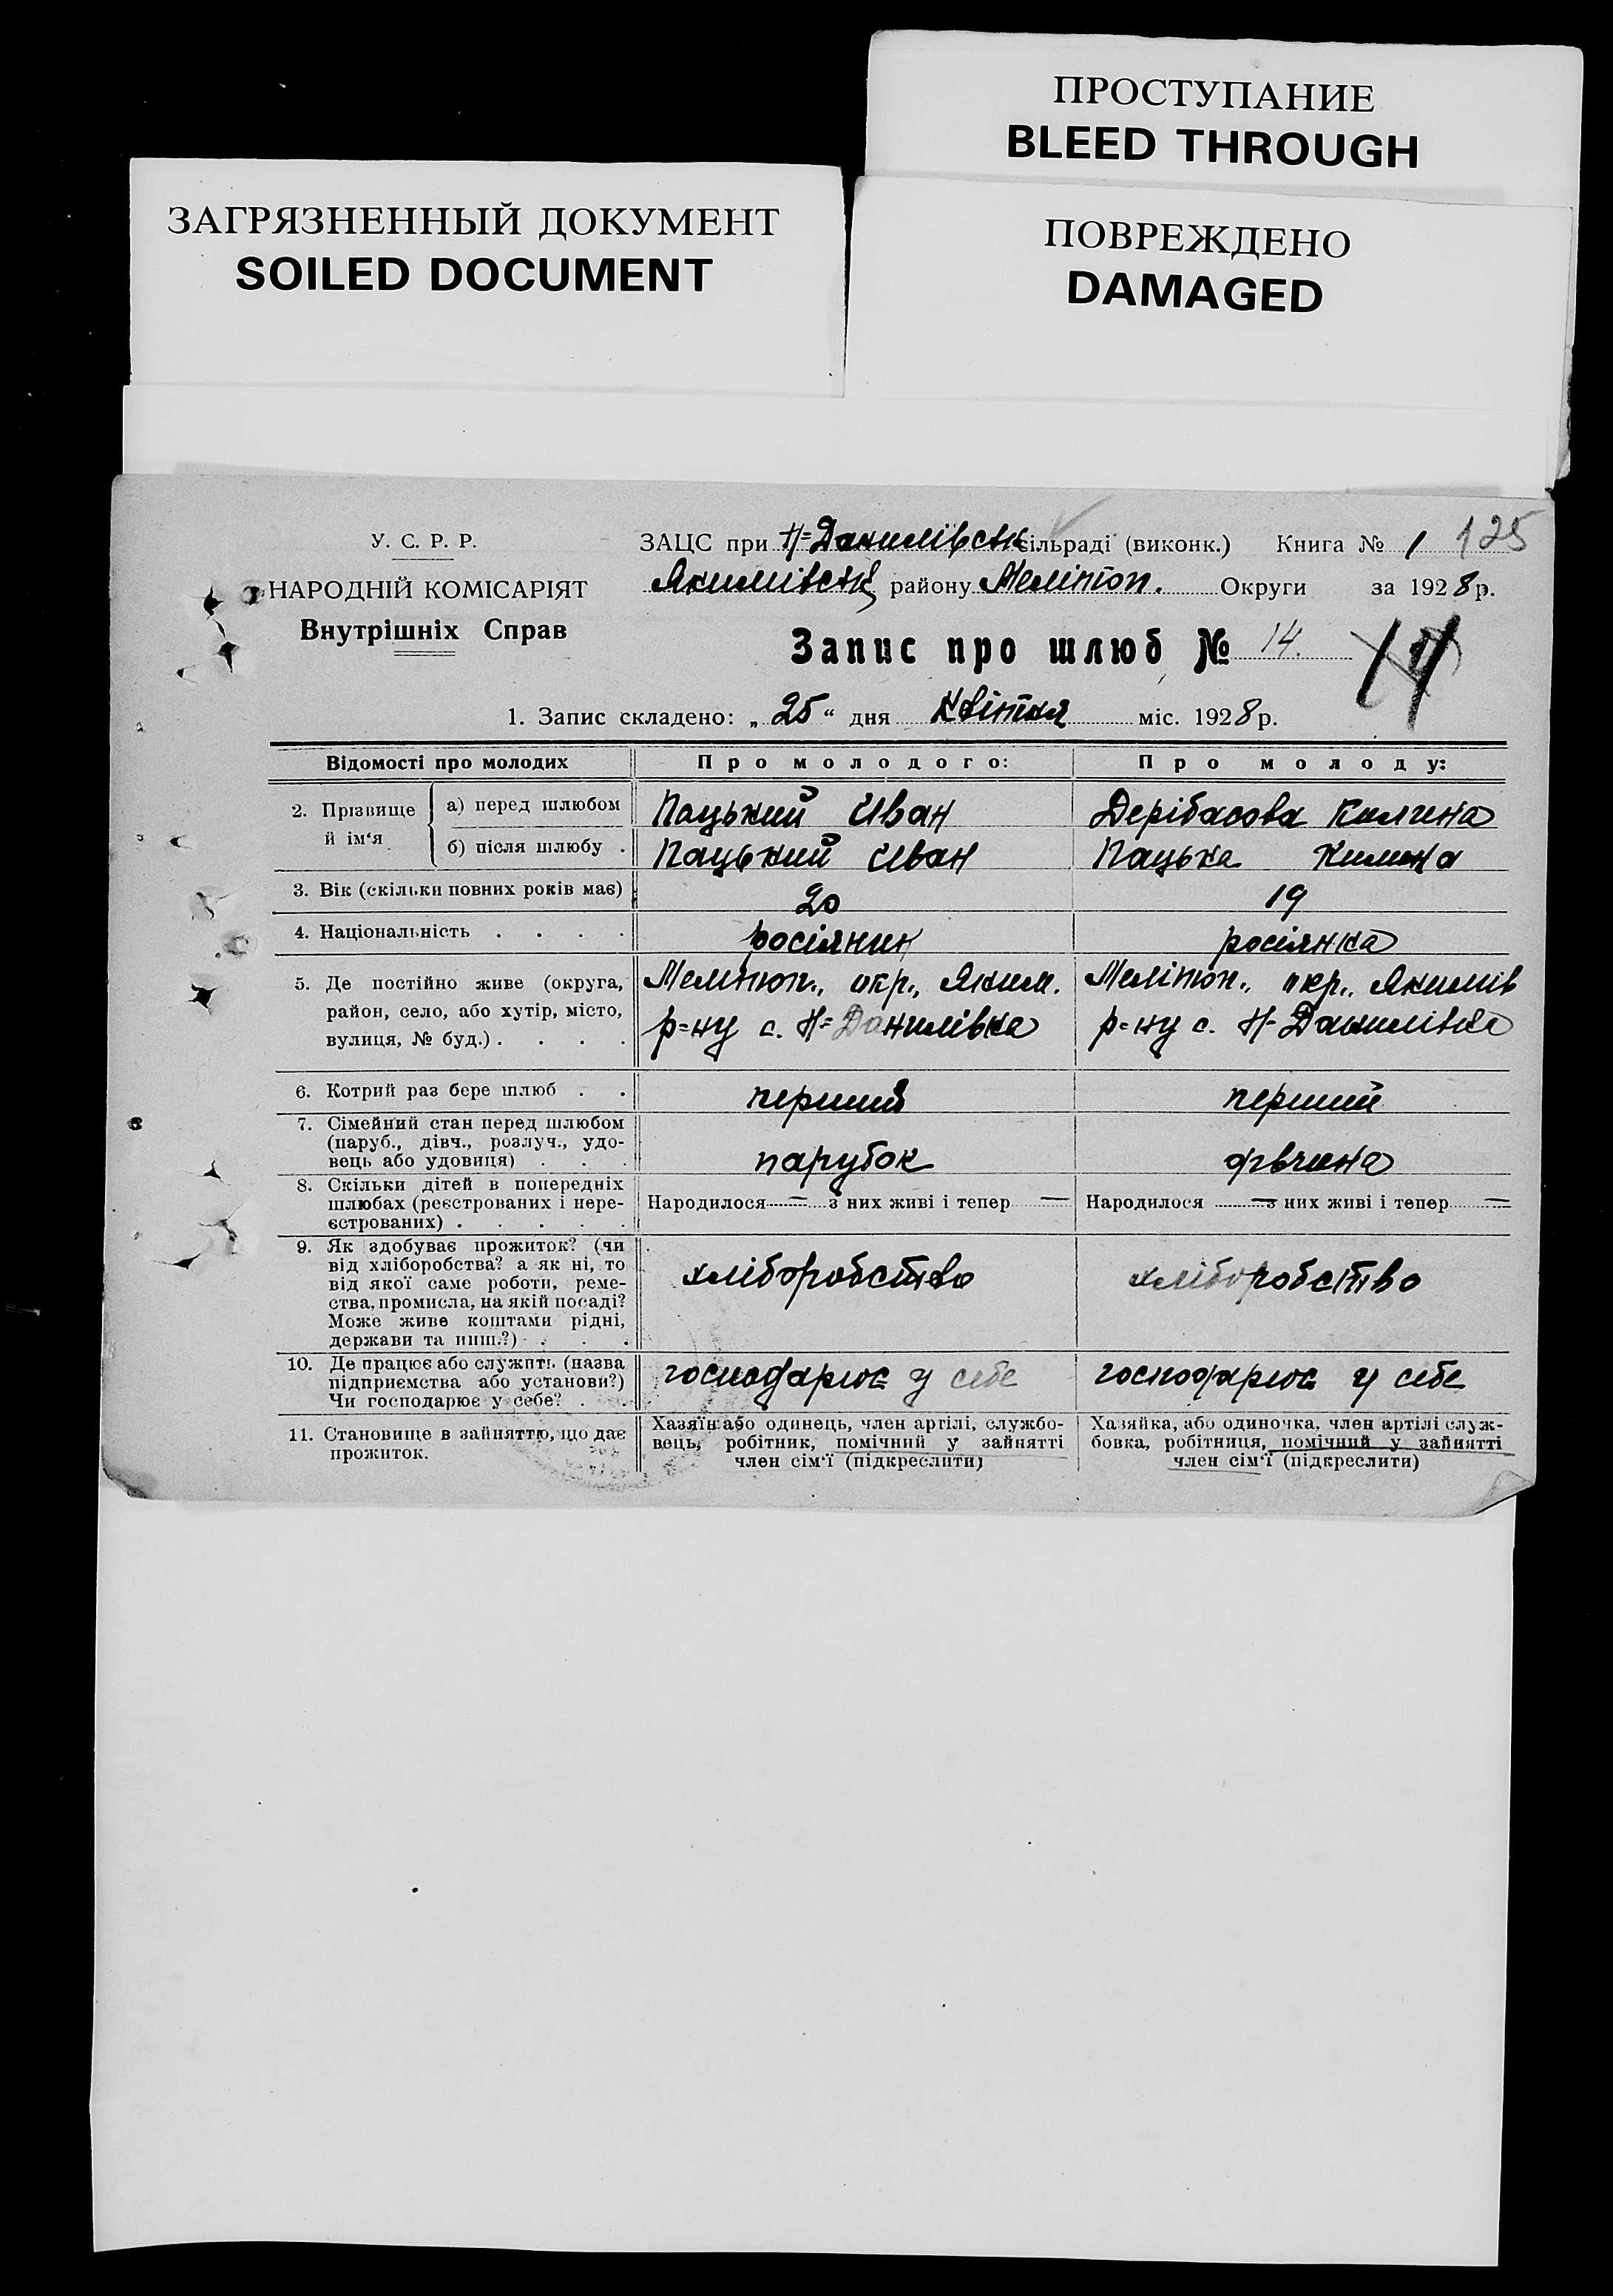 ПРОСТУПАНИЕ
BLEED THROUGH
ЗАГРЯЗНЕННЫЙ ДОКУМЕНТ
SOILED DOCUMENT
ПОВРЕЖДЕНО
DAMAGED
У. С. Р. Р.
НАРОДНІЙ КОМІСАРІЯТ
Внутрішніх Справ
ЗАЦС при Н=Данилівськ сільраді (виконк.) Книга № 1 125
Якимівськ району Меліпюп. Округи за 1928 р.
Запис про шлюб № 14. 14
1. Запис складено: „ 25 “ дня Квітня міс. 1928 р.
Відомості про молодих Про молодого: Про молоду:
2. Прізвище й ім‘я
а) перед шлюбом Пацький Иван Дерібасова Килина
б) після шлюбу . Пацький Иван Пацька Килина
3. Вік (скільки повних років має) 20 19
4. Національність . . . . росіянин росіянка
5. Де постійно живе (округа, Меліпоп., окр., Яким. Меліпоп., окр., Якимів
район, село, або хутір, місто, р=ну с. Н=Данилівка р=ну с. Н-Данилівка
вулиця, № буд.) . . . .
6. Котрий раз бере шлюб . . перший перший
7. Сімейний стан перед шлюбом
(паруб., дівч., розлуч., удо-
вець або удовиця) . . . парубок дівчина
8. Скільки дітей в попередніх
шлюбах (реєстрованих і нере- Народилося = з них живі і тепер = Народилося = з них живі і тепер =
єстрованих) . . . . .
9. Як здобуває прожиток? (чи
від хліборобства? а як ні, то хліборобство хліборобство
від якої саме роботи, реме-
ства, промисла, на якій посаді?
Може живе коштами рідні,
держави та инш.?) . . .
10. Де працює або служить (назва
підприємства або установи?) господарює у себе господарює у себе
Чи господарює у себе? . . .
11. Становище в зайняттю, що дає
прожиток.
Хазяїн або одинець, член артілі, службо-
вець, робітник, помічний у зайнятті
член сім‘ї (підкреслити)
Хазяйка, або одиночка, член артілі служ-
бовка, робітниця, помічний у зайнятті
член сім‘ї (підкреслити)